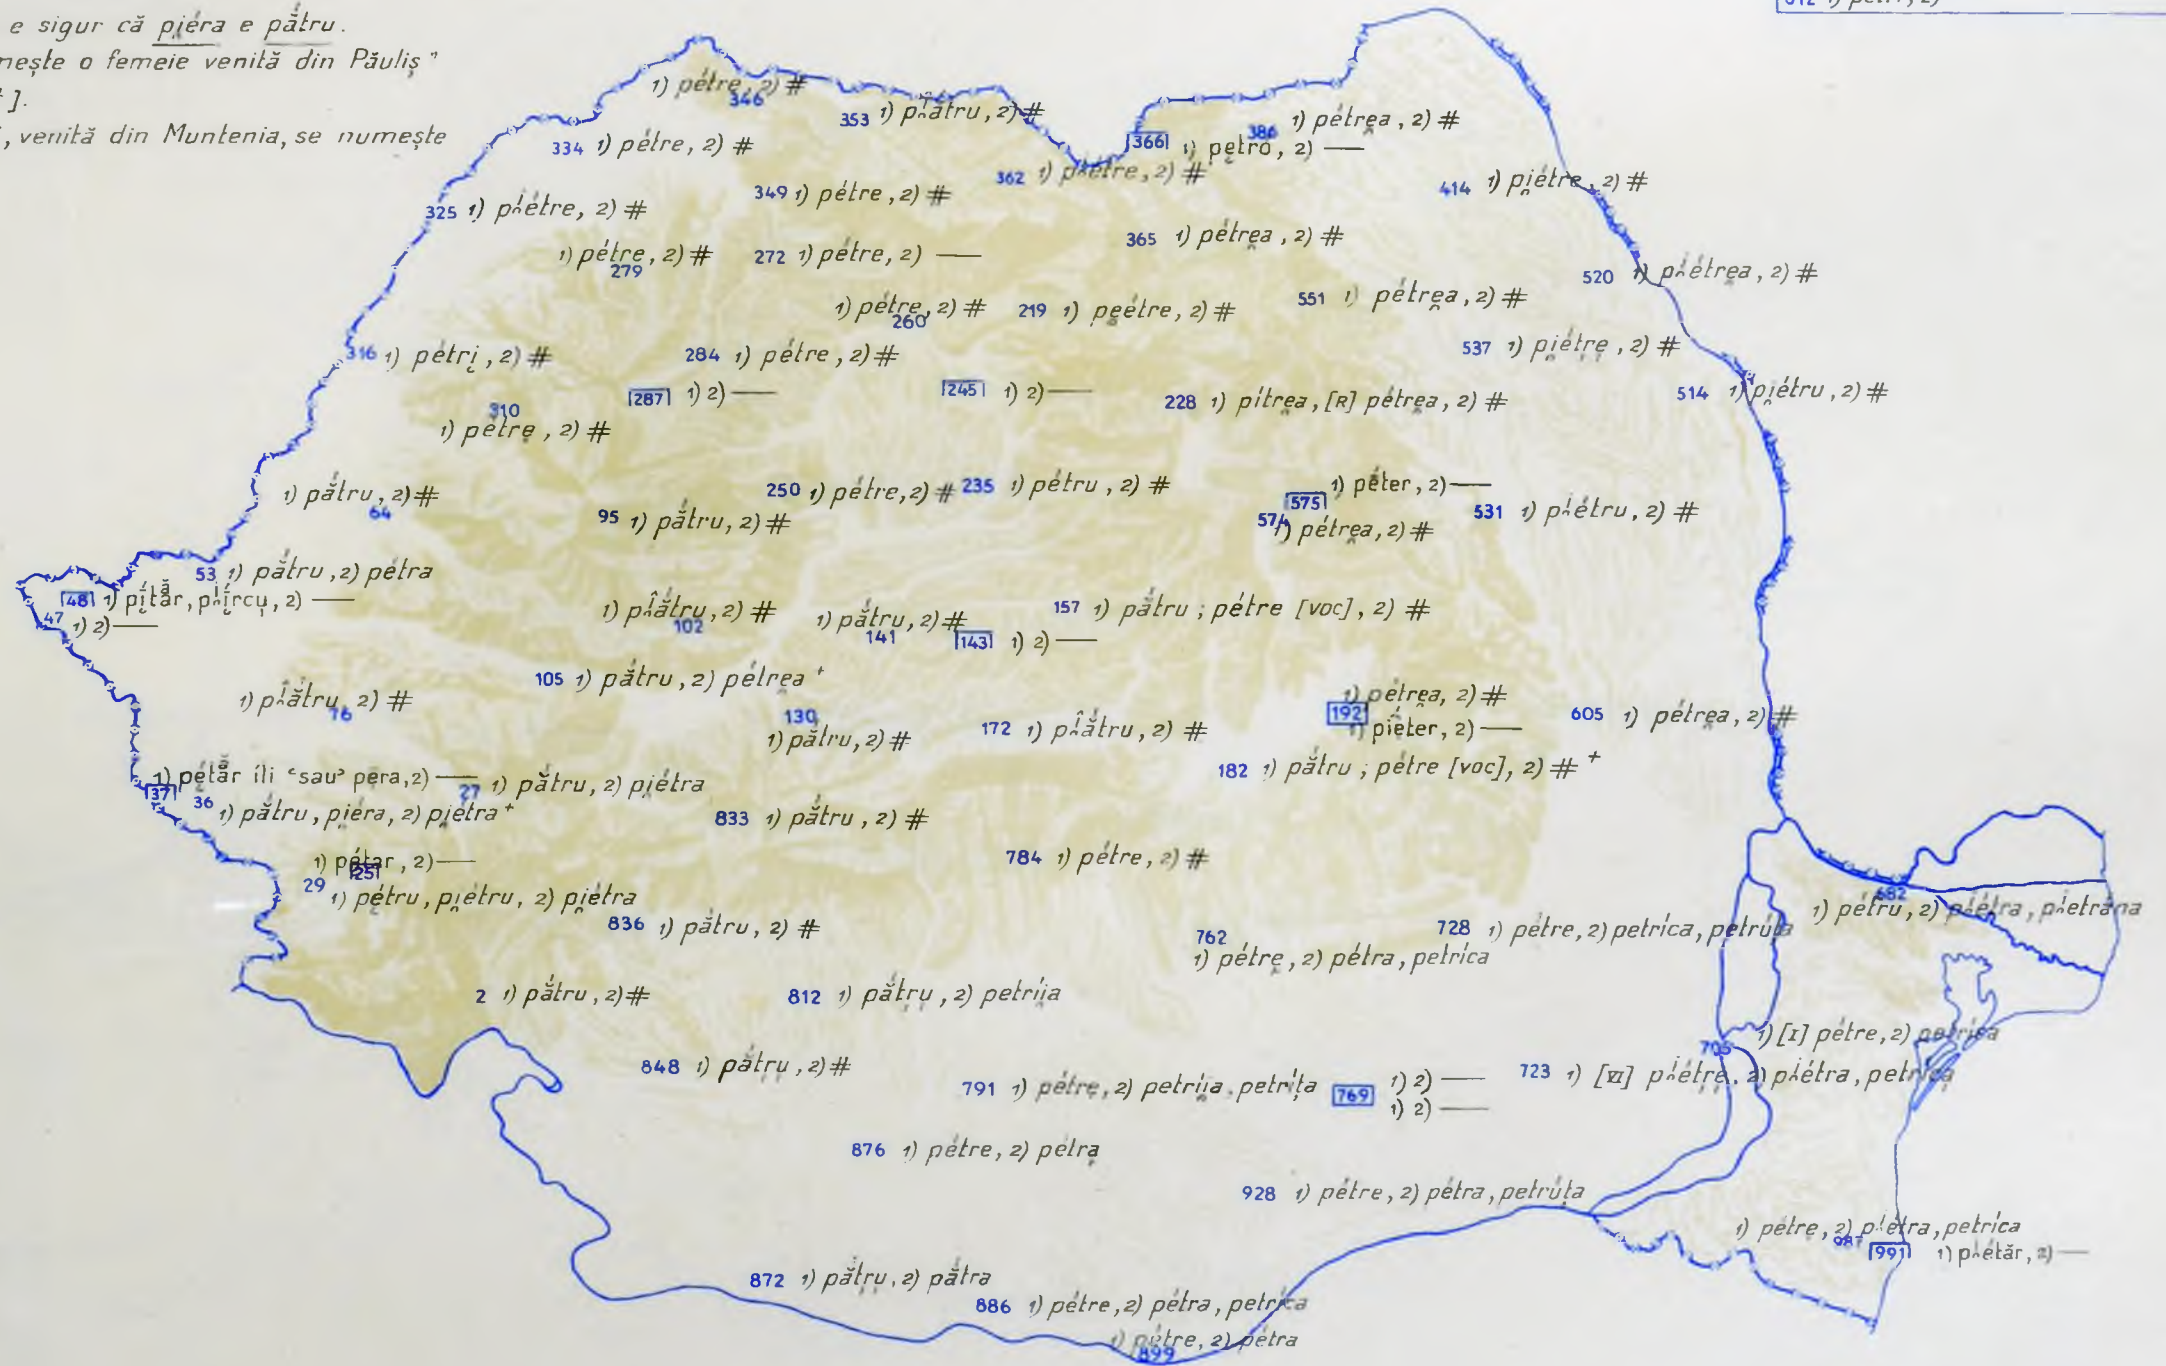 e sigur că pi̯éra e pắtru.
nește o femeie venită din Păuliș"
].
, venită din Muntenia, se numește
1) pétre, 2) #
346
353 1) pʰắtru, 2) #
334 1) pétre, 2) #
386 1) pétrea, 2) #
366 1) petró, 2) —
362 1) pʰétre, 2) #
349 1) pétre, 2) #
414 1) pi̯étre, 2) #
325 1) pʰétre, 2) #
365 1) pétrea, 2) #
1) pétre, 2) #
279
272 1) pétre, 2) —
520 1) pʰétrea, 2) #
551 1) pétrea, 2) #
1) pétre, 2) #
260
219 1) peétre, 2) #
316 1) pétri, 2) #
284 1) pétre, 2) #
537 1) pi̯étrẹ, 2) #
287 1) 2) —
245 1) 2) —
228 1) pítrea, [R] pétrea, 2) #
514 1) pi̯étru, 2) #
310
1) pétrẹ, 2) #
1) pắtru, 2) #
64
250 1) pétre, 2) #
235 1) pétru, 2) #
575 1) péter, 2) —
95 1) pắtru, 2) #
574 1) pétrea, 2) #
531 1) pʰétru, 2) #
53 1) pắtru, 2) pétra
48 1) pị́tăr, pʰírcu, 2) —
47 1) 2) —
1) pʰắtru, 2) #
102
1) pắtru, 2) #
141
157 1) pắtru ; pétre [voc], 2) #
143 1) 2) —
105 1) pắtru, 2) pétrea +
1) pʰắtru, 2) #
76
130
1) pắtru, 2) #
172 1) pʰắtru, 2) #
1) pétrea, 2) #
192 1) piéter, 2) —
605 1) pétrea, 2) #
182 1) pắtru ; pétre [voc], 2) # +
37 1) pétăr íli ‹sau› pera, 2) —
27 1) pắtru, 2) pi̯étra
36 1) pắtru, pi̯éra, 2) pi̯étra +
833 1) pắtru, 2) #
1) pétar, 2) —
25
784 1) pétre, 2) #
29 1) pẹ́tru, pi̯étru, 2) pi̯étra
836 1) pắtru, 2) #
682
1) pétru, 2) pʰétra, pʰetrána
728 1) pétre, 2) petríca, petrúța
762
1) pétrẹ, 2) pétra, petríca
2 1) pắtru, 2) #
812 1) pắtrụ, 2) petríi̯a
1) [I] pétre, 2) petríca
705
848 1) pắtrụ, 2) #
791 1) pétrẹ, 2) petríi̯a, petríța
769 1) 2) —
1) 2) —
723 1) [VI] pʰétrẹ, 2) pʰétra, petríca
876 1) pétre, 2) pétra
928 1) pétre, 2) pétra, petrúța
1) pétre, 2) pʰétra, petríca
987
991 1) pʰétăr, 2) —
872 1) pắtrụ, 2) pắtra
886 1) pétre, 2) pétra, petríca
1) pétre, 2) pétra
899